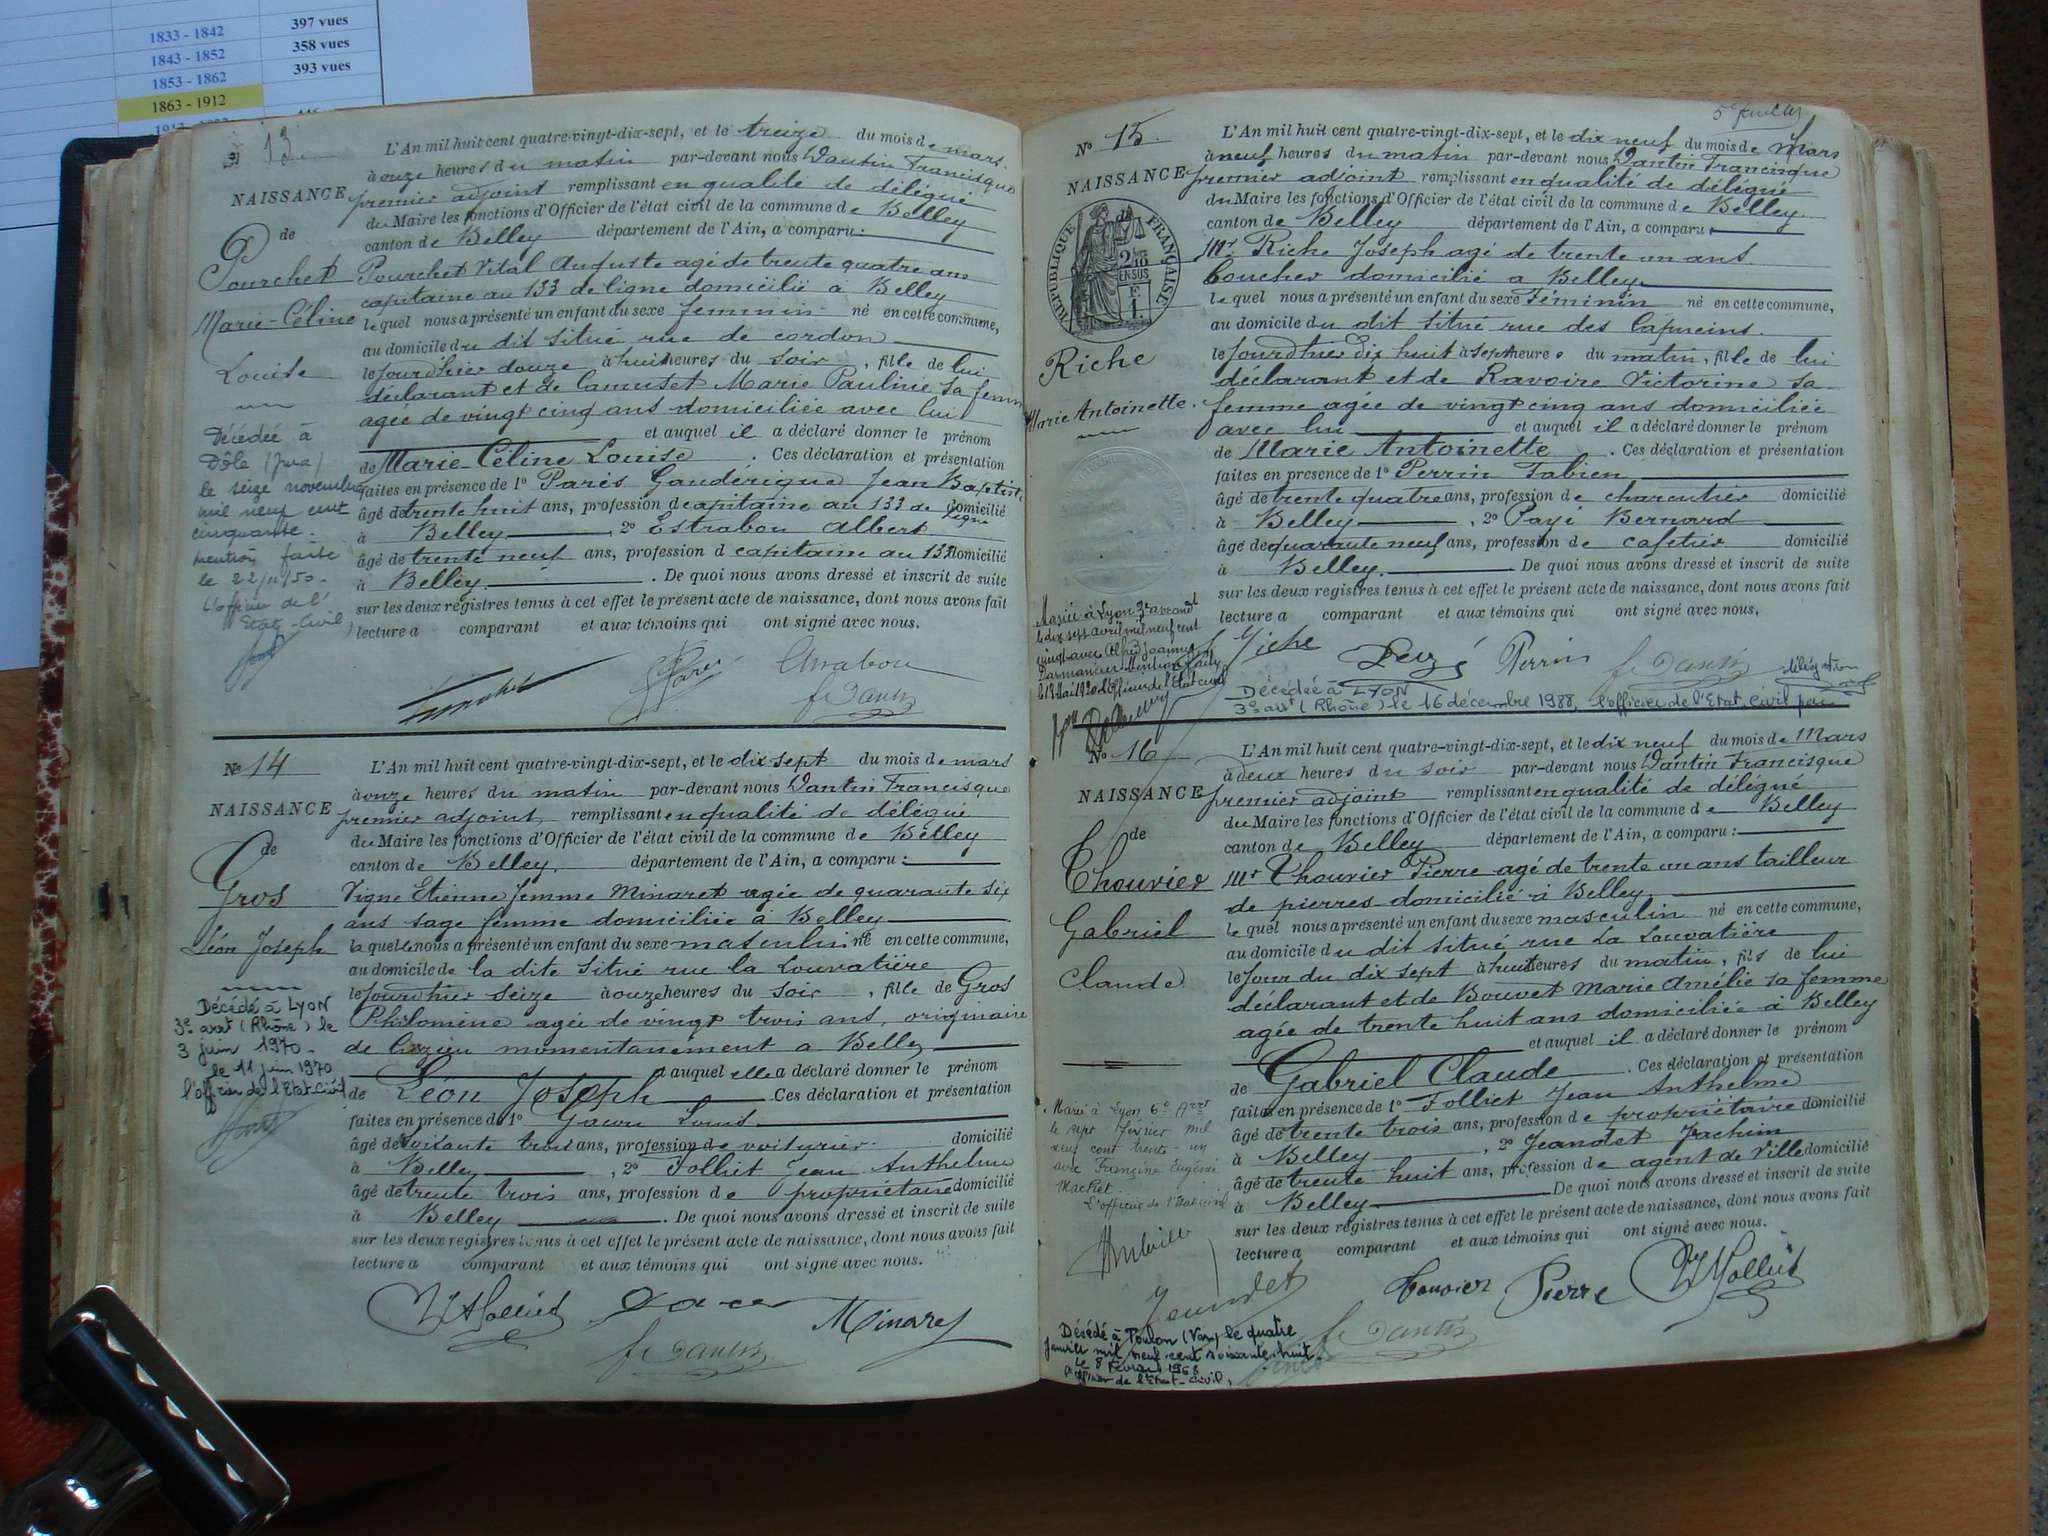 397 vues
1833 - 1842
358 vues
1843 - 1852
393 vues
1853 - 1862
1863 - 1912
13
L'An mil huit cent quatre-vingt-dix-sept, et le treize du mois de mars
à onze heures du matin par-devant nous Dantin Francisque
NAISSANCE premier adjoint remplissant en qualité de délégué
du Maire les fonctions d'Officier de l'état civil de la commune de Belley
de canton de Belley département de l'Ain, a comparu :
Pourchet Pourchet Vital Auguste agé de trente quatre ans
capitaine au 133 de ligne domicilié à Belley
Marie-Céline lequel nous a présenté un enfant du sexe feminin né en cette commune,
au domicile du dit situé rue de cordon
Louise le jour d'hier douze à huit heures du soir, fille de lui
déclarant et de Camuset Marie Pauline sa femme
agée de vingt cinq ans domiciliée avec lui
et auquel il a déclaré donner le prénom
de Marie-Céline Louise. Ces déclaration et présentation
faites en présence de 1° Parès Gaudérique Jean Baptiste
âgé de trente huit ans, profession de capitaine au 133 de ligne domicilié
à Belley, 2° Estrabou Albert
âgé de trente neuf ans, profession d capitaine au 133 domicilié
à Belley. De quoi nous avons dressé et inscrit de suite
sur les deux registres tenus à cet effet le présent acte de naissance, dont nous avons fait
lecture a comparant et aux témoins qui ont signé avec nous.
Décédée à
Dôle (Jura)
le seize novembre
mil neuf cent
cinquante.
mention faite
le 22/11/50.
L'officier de l'
Etat-Civil
fr Dantin
N° 14
L'An mil huit cent quatre-vingt-dix-sept, et le dix sept du mois de mars
à onze heures du matin par-devant nous Dantin Francisque
NAISSANCE premier adjoint remplissant en qualité de délégué
du Maire les fonctions d'Officier de l'état civil de la commune de Belley
de canton de Belley département de l'Ain, a comparu :
Gros Vigne Etienne femme Minaret agée de quarante six
ans sage femme domiciliée à Belley
Léon Joseph la quelle nous a présenté un enfant du sexe masculin né en cette commune,
au domicile de la dite situé rue la Louvatière
le jour d'hier seize à onze heures du soir, fils de Gros
Philomène agée de vingt trois ans, originaire
momentanément a Belley
auquel elle a déclaré donner le prénom
de Léon Joseph Ces déclaration et présentation
faites en présence de 1° Louis
âgé de soixante trois ans, profession de voiturier domicilié
à Belley, 2° Folliet Jean Anthelme
âgé de trente trois ans, profession de propriétaire domicilié
à Belley. De quoi nous avons dressé et inscrit de suite
sur les deux registres tenus à cet effet le présent acte de naissance, dont nous avons fait
lecture a comparant et aux témoins qui ont signé avec nous.
Décédé à LYON
3e arrt (Rhône) le
3 juin 1970.
le 11 juin 1970
l'officier de l'Etat-Civil
fr Dantin
N° 15
L'An mil huit cent quatre-vingt-dix-sept, et le dix neuf du mois de Mars
à neuf heures du matin par-devant nous Dantin Francisque
NAISSANCE premier adjoint remplissant en qualité de délégué
du Maire les fonctions d'Officier de l'état civil de la commune de Belley
de canton de Belley département de l'Ain, a comparu
RÉPUBLIQUE FRANÇAISE
2/10 EN SUS
Mr Riche Joseph agé de trente un ans
boucher domicilié a Belley
lequel nous a présenté un enfant du sexe Féminin né en cette commune,
au domicile du dit situé rue des Capucins
Riche le jour d'hier dix huit à sept heures du matin, fille de lui
déclarant et de Ravoire Victorine sa
Marie Antoinette. femme agée de vingt cinq ans domiciliée
avec lui et auquel il a déclaré donner le prénom
de Marie Antoinette. Ces déclaration et présentation
faites en présence de 1° Perrin Fabien
âgé de trente quatre ans, profession de charcutier domicilié
à Belley, 2° Payé Bernard
âgé de quarante neuf ans, profession de cafetier domicilié
à Belley. De quoi nous avons dressé et inscrit de suite
sur les deux registres tenus à cet effet le présent acte de naissance, dont nous avons fait
lecture a comparant et aux témoins qui ont signé avec nous.
Mariée à Lyon 3e arrond
le dix sept avril mil neuf cent
vingt avec Joannès
Mention faite
le 13 Mai 1920 l'Officier de l'Etat civil
Riche Perrin fr Dantin
Décédée à LYON
3e arrt (Rhône) le 16 décembre 1988. l'officier de l'Etat civil par délégation
N° 16
L'An mil huit cent quatre-vingt-dix-sept, et le dix neuf du mois de Mars
à deux heures du soir par-devant nous Dantin Francisque
NAISSANCE premier adjoint remplissant en qualité de délégué
du Maire les fonctions d'Officier de l'état civil de la commune de Belley
de canton de Belley département de l'Ain, a comparu :
Thouvier Mr Thouvier Pierre agé de trente un ans tailleur
de pierres domicilié à Belley
Gabriel lequel nous a présenté un enfant du sexe masculin né en cette commune,
au domicile du dit situé rue la Louvatière
Claude le jour du dix sept à huit heures du matin, fils de lui
déclarant et de Bouvet Marie Amélie sa femme
agée de trente huit ans domiciliée à Belley
et auquel il a déclaré donner le prénom
de Gabriel Claude. Ces déclaration et présentation
faites en présence de 1° Folliet Jean Anthelme
âgé de trente trois ans, profession de propriétaire domicilié
à Belley, 2° Jeandet Joachim
âgé de trente huit ans, profession de agent de Ville domicilié
à Belley De quoi nous avons dressé et inscrit de suite
sur les deux registres tenus à cet effet le présent acte de naissance, dont nous avons fait
lecture a comparant et aux témoins qui ont signé avec nous.
Marié à Lyon 6e Arrt
le sept février mil
neuf cent trente un
avec Francine Eugénie
Machet
L'officier de l'Etat civil
Jeandet Thouvier Pierre
fr Dantin
Décédé à Toulon (Var) le quatre
Janvier mil neuf cent soixante huit
le 8 Février 1968
l'officier de l'Etat-Civil,